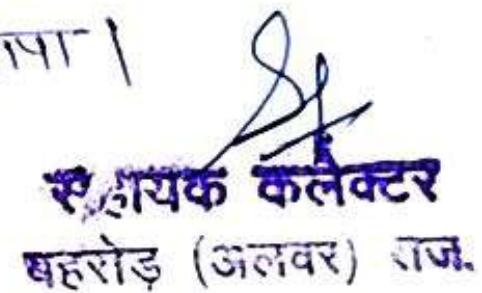 सहायक कलैक्टर
बहरोड़ (अलवर) राज.